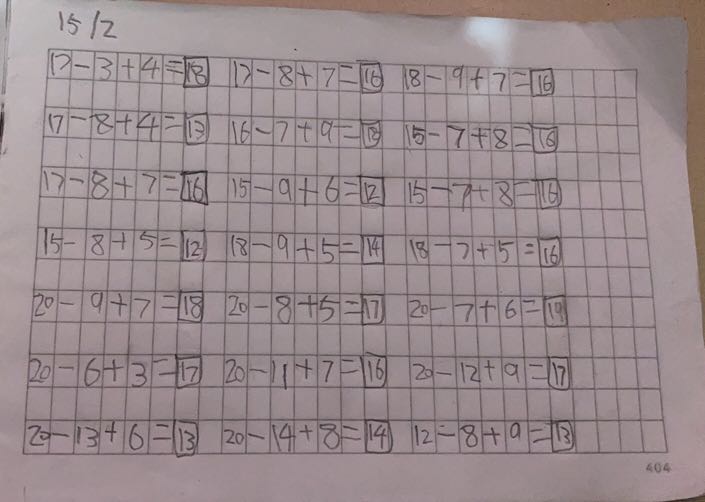 15/2
17-3+4=18 17-8+7=16 18-9+7=16
17-8+4=13 16-7+9=18 15-7+8=16
17-8+7=16 15-9+6=12 15-7+8=16
15-8+5=12 18-9+5=14 18-7+5=16
20-9+7=18 20-8+5=17 20-7+6=19
20-6+3=17 20-11+7=16 20-12+9=17
20-13+6=13 20-14+8=14 12-8+9=13
404